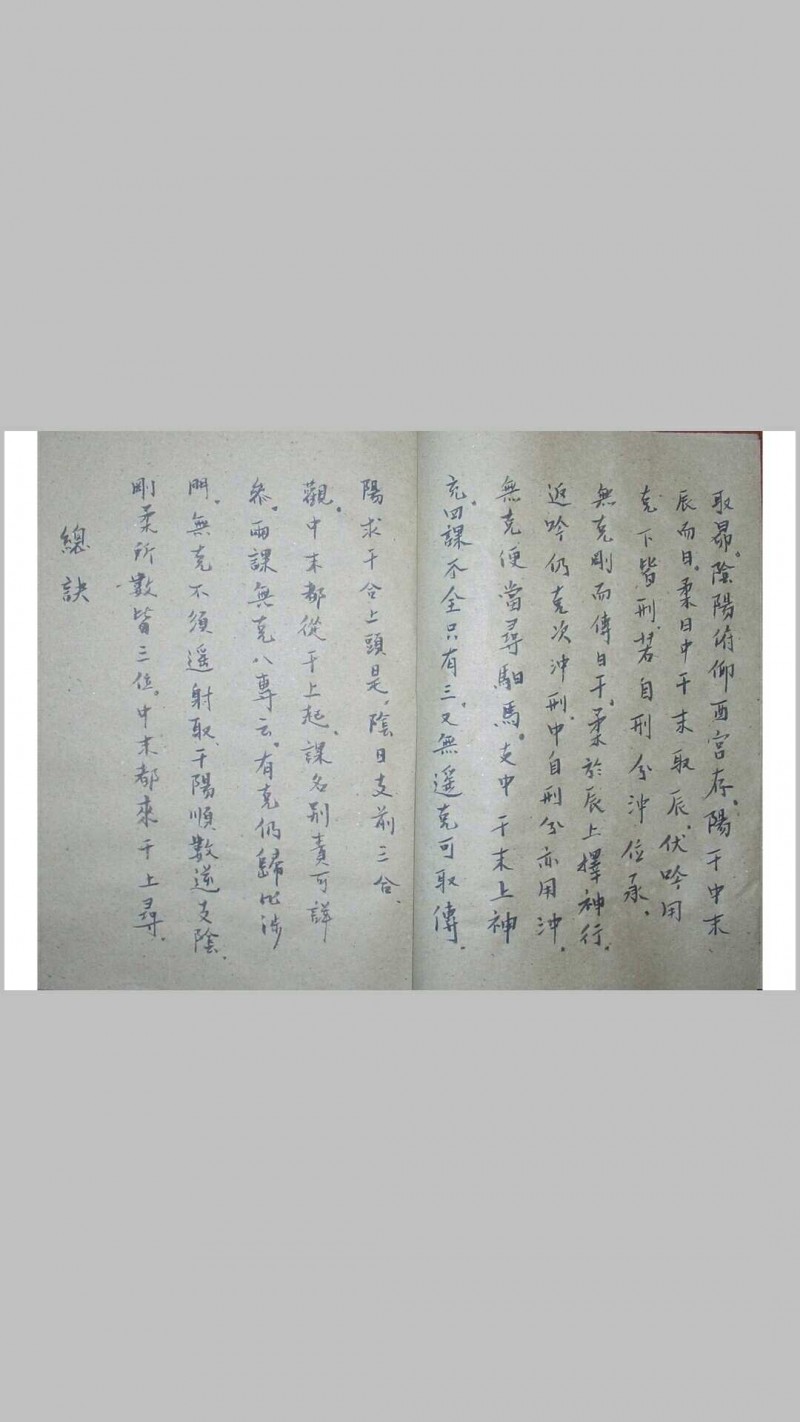 取昴。陰陽俯仰酉宮存。陽干中末
辰而日。柔日中干末取辰。伏吟用
克下皆刑。若自刑兮沖位承。
無克剛而傳日干。柔於辰上擇神行。
返吟仍克次沖刑。中自刑兮亦用沖。
無克便當尋馹馬。支中干末上神
充。四課不全只有三。又無遥克可取傳。
陽求干合上頭是。陰日支前三合
觀。中末都從干上起。課名別責可詳
参。兩課無克八專云。有克仍歸比涉
門。無克不須遥射取。干陽順數逆支陰。
剛柔所數皆三位。中末都來干上尋。
總訣